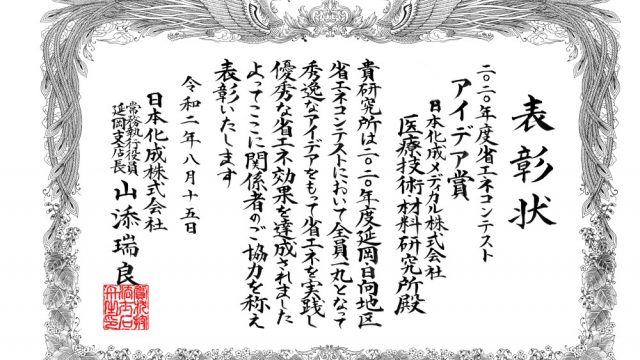 表彰状
二〇二〇年度省エネコンテスト
アイデア賞
日本化成メディカル株式会社
医療技術材料研究所殿
貴研究所は二〇二〇年度延岡・日向地区
省エネコンテストにおいて全員一丸となって
秀逸なアイデアをもって省エネを実践し
優秀な省エネ効果を達成されました
よってここに関係者のご協力を称え
表彰いたします
令和二年八月十五日
日本化成株式会社
常務執行役員
延岡支店長
山添瑞良